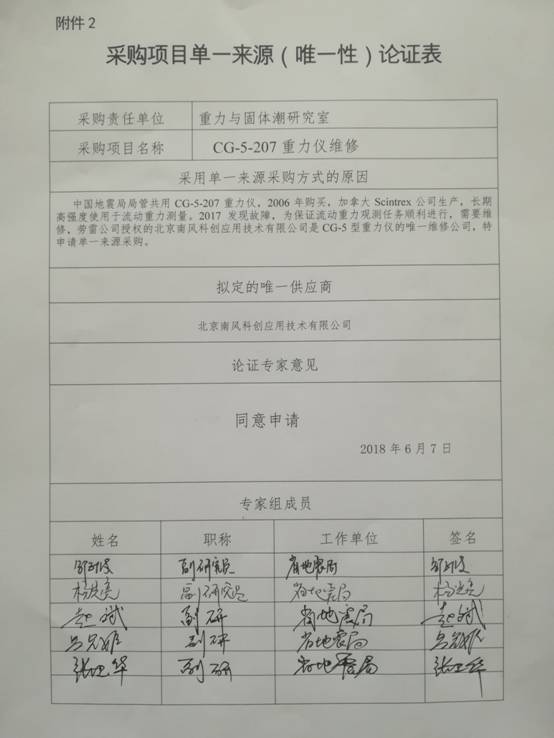 附件 2
采购项目单一来源（唯一性）论证表
采购责任单位 重力与固体潮研究室
采购项目名称 CG-5-207 重力仪维修
采用单一来源采购方式的原因
中国地震局局管共用 CG-5-207 重力仪，2006 年购买，加拿大 Scintrex 公司生产，长期
高强度使用于流动重力测量。2017 发现故障，为保证流动重力观测任务顺利进行，需要维
修，劳雷公司授权的北京南风科创应用技术有限公司是 CG-5 型重力仪的唯一维修公司，特
申请单一来源采购。
拟定的唯一供应商
北京南风科创应用技术有限公司
论证专家意见
同意申请
2018 年 6 月 7 日
专家组成员
姓名 职称 工作单位 签名
副研究员 省地震局
副研究员 省地震局
赵斌 副研 省地震局 赵斌
副研 省地震局
张卫华 副研 省地震局 张卫华